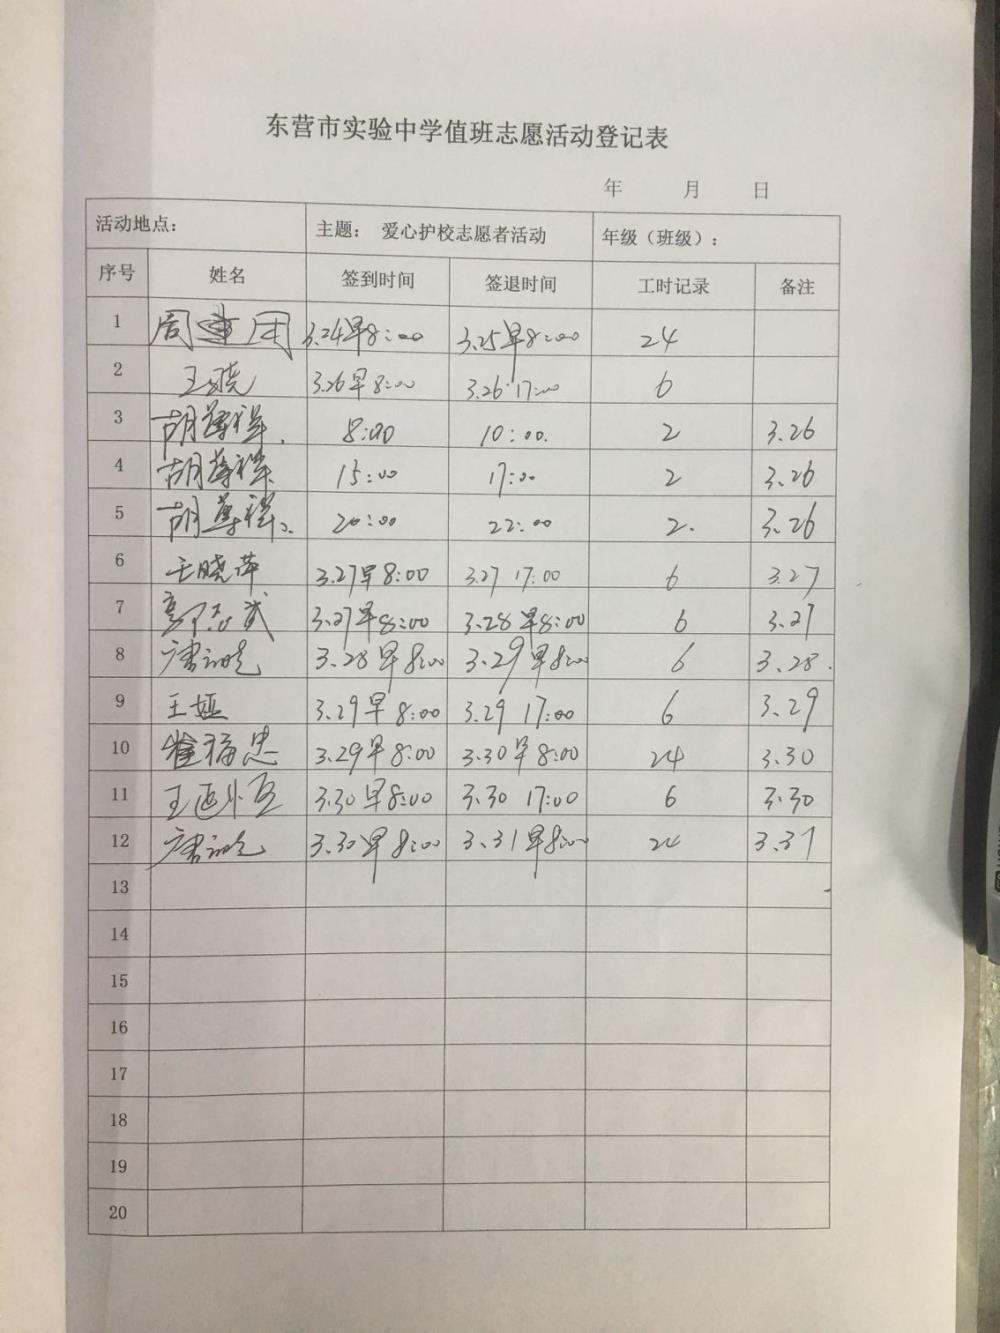 东营市实验中学值班志愿活动登记表
年 月 日
活动地点： 主题： 爱心护校志愿者活动 年级（班级）：
序号 姓名 签到时间 签退时间 工时记录 备注
1 周 3.24早8:00 3.25早8:00 24
2 王晓 3.26早8:00 3.26 17:00 6
3 胡 8:00 10:00. 2 3.26
4 胡 15:00 17:00 2 3.26
5 胡 20:00 22:00 2. 3.26
6 王晓萍 3.27早8:00 3.27 17:00 6 3.27
7 3.27早8:00 3.28早8:00 6 3.27
8 3.28早8:00 3.29早8:00 6 3.28.
9 王娅 3.29早8:00 3.29 17:00 6 3.29
10 崔福忠 3.29早8:00 3.30早8:00 24 3.30
11 王 3.30早8:00 3.30 17:00 6 3.30
12 3.30早8:00 3.31早8:00 24 3.31
13
14
15
16
17
18
19
20